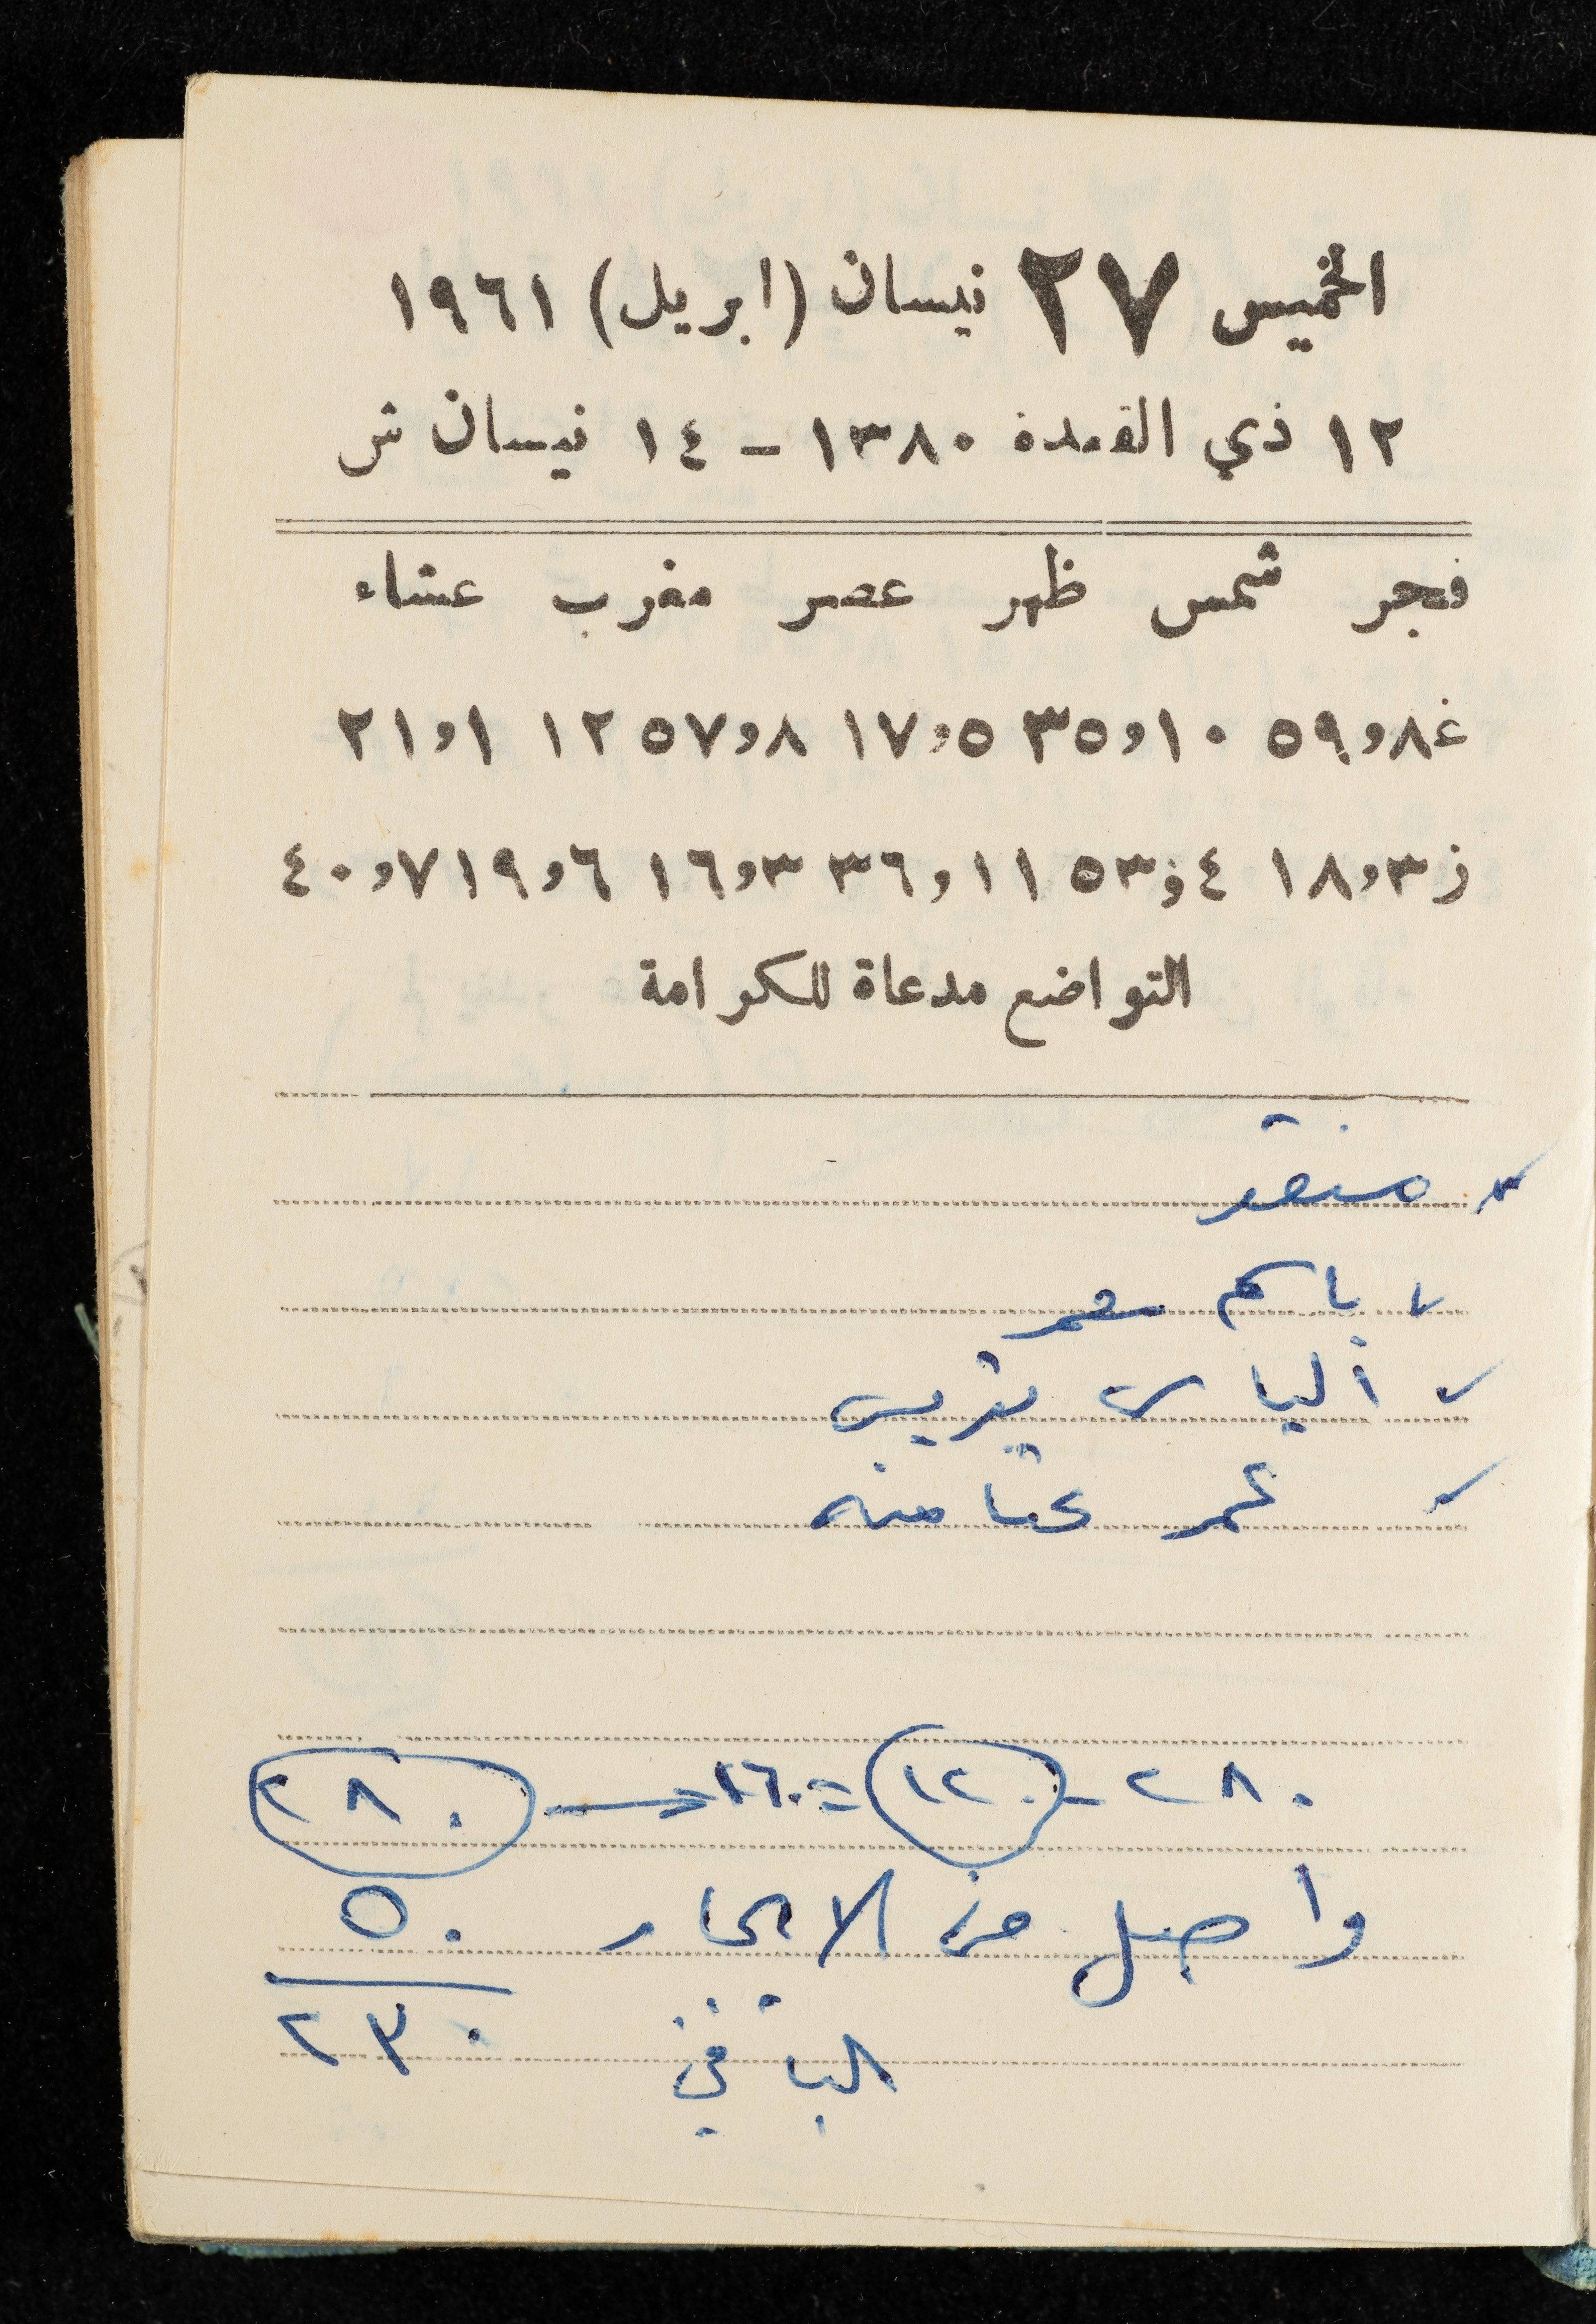 الخميس ٢٧ نيسان (ابريل) ١٩٦١
١٢ ذي القعدة ١٣٨٠ - ١٤ نيسان ش
فجر شمس ظهر عصر مغرب عشاء
غ ٨و٥٩ ١٠و٣٥ ٥و١٧ ٨و٥٧ ١٢ ١و٢١
ز ٣و١٨ ٤و٥٣ ١١و٣٦ ٣و١٦ ٦و١٩ ٧و٤٠
التواضع مدعاة للكرامة
باسم
الياس
عمر
٢٨٠ - ١٢٠ = ١٦٠ ٢٨٠
واصل من الايجار ٥٠
الباقي ٢٣٠